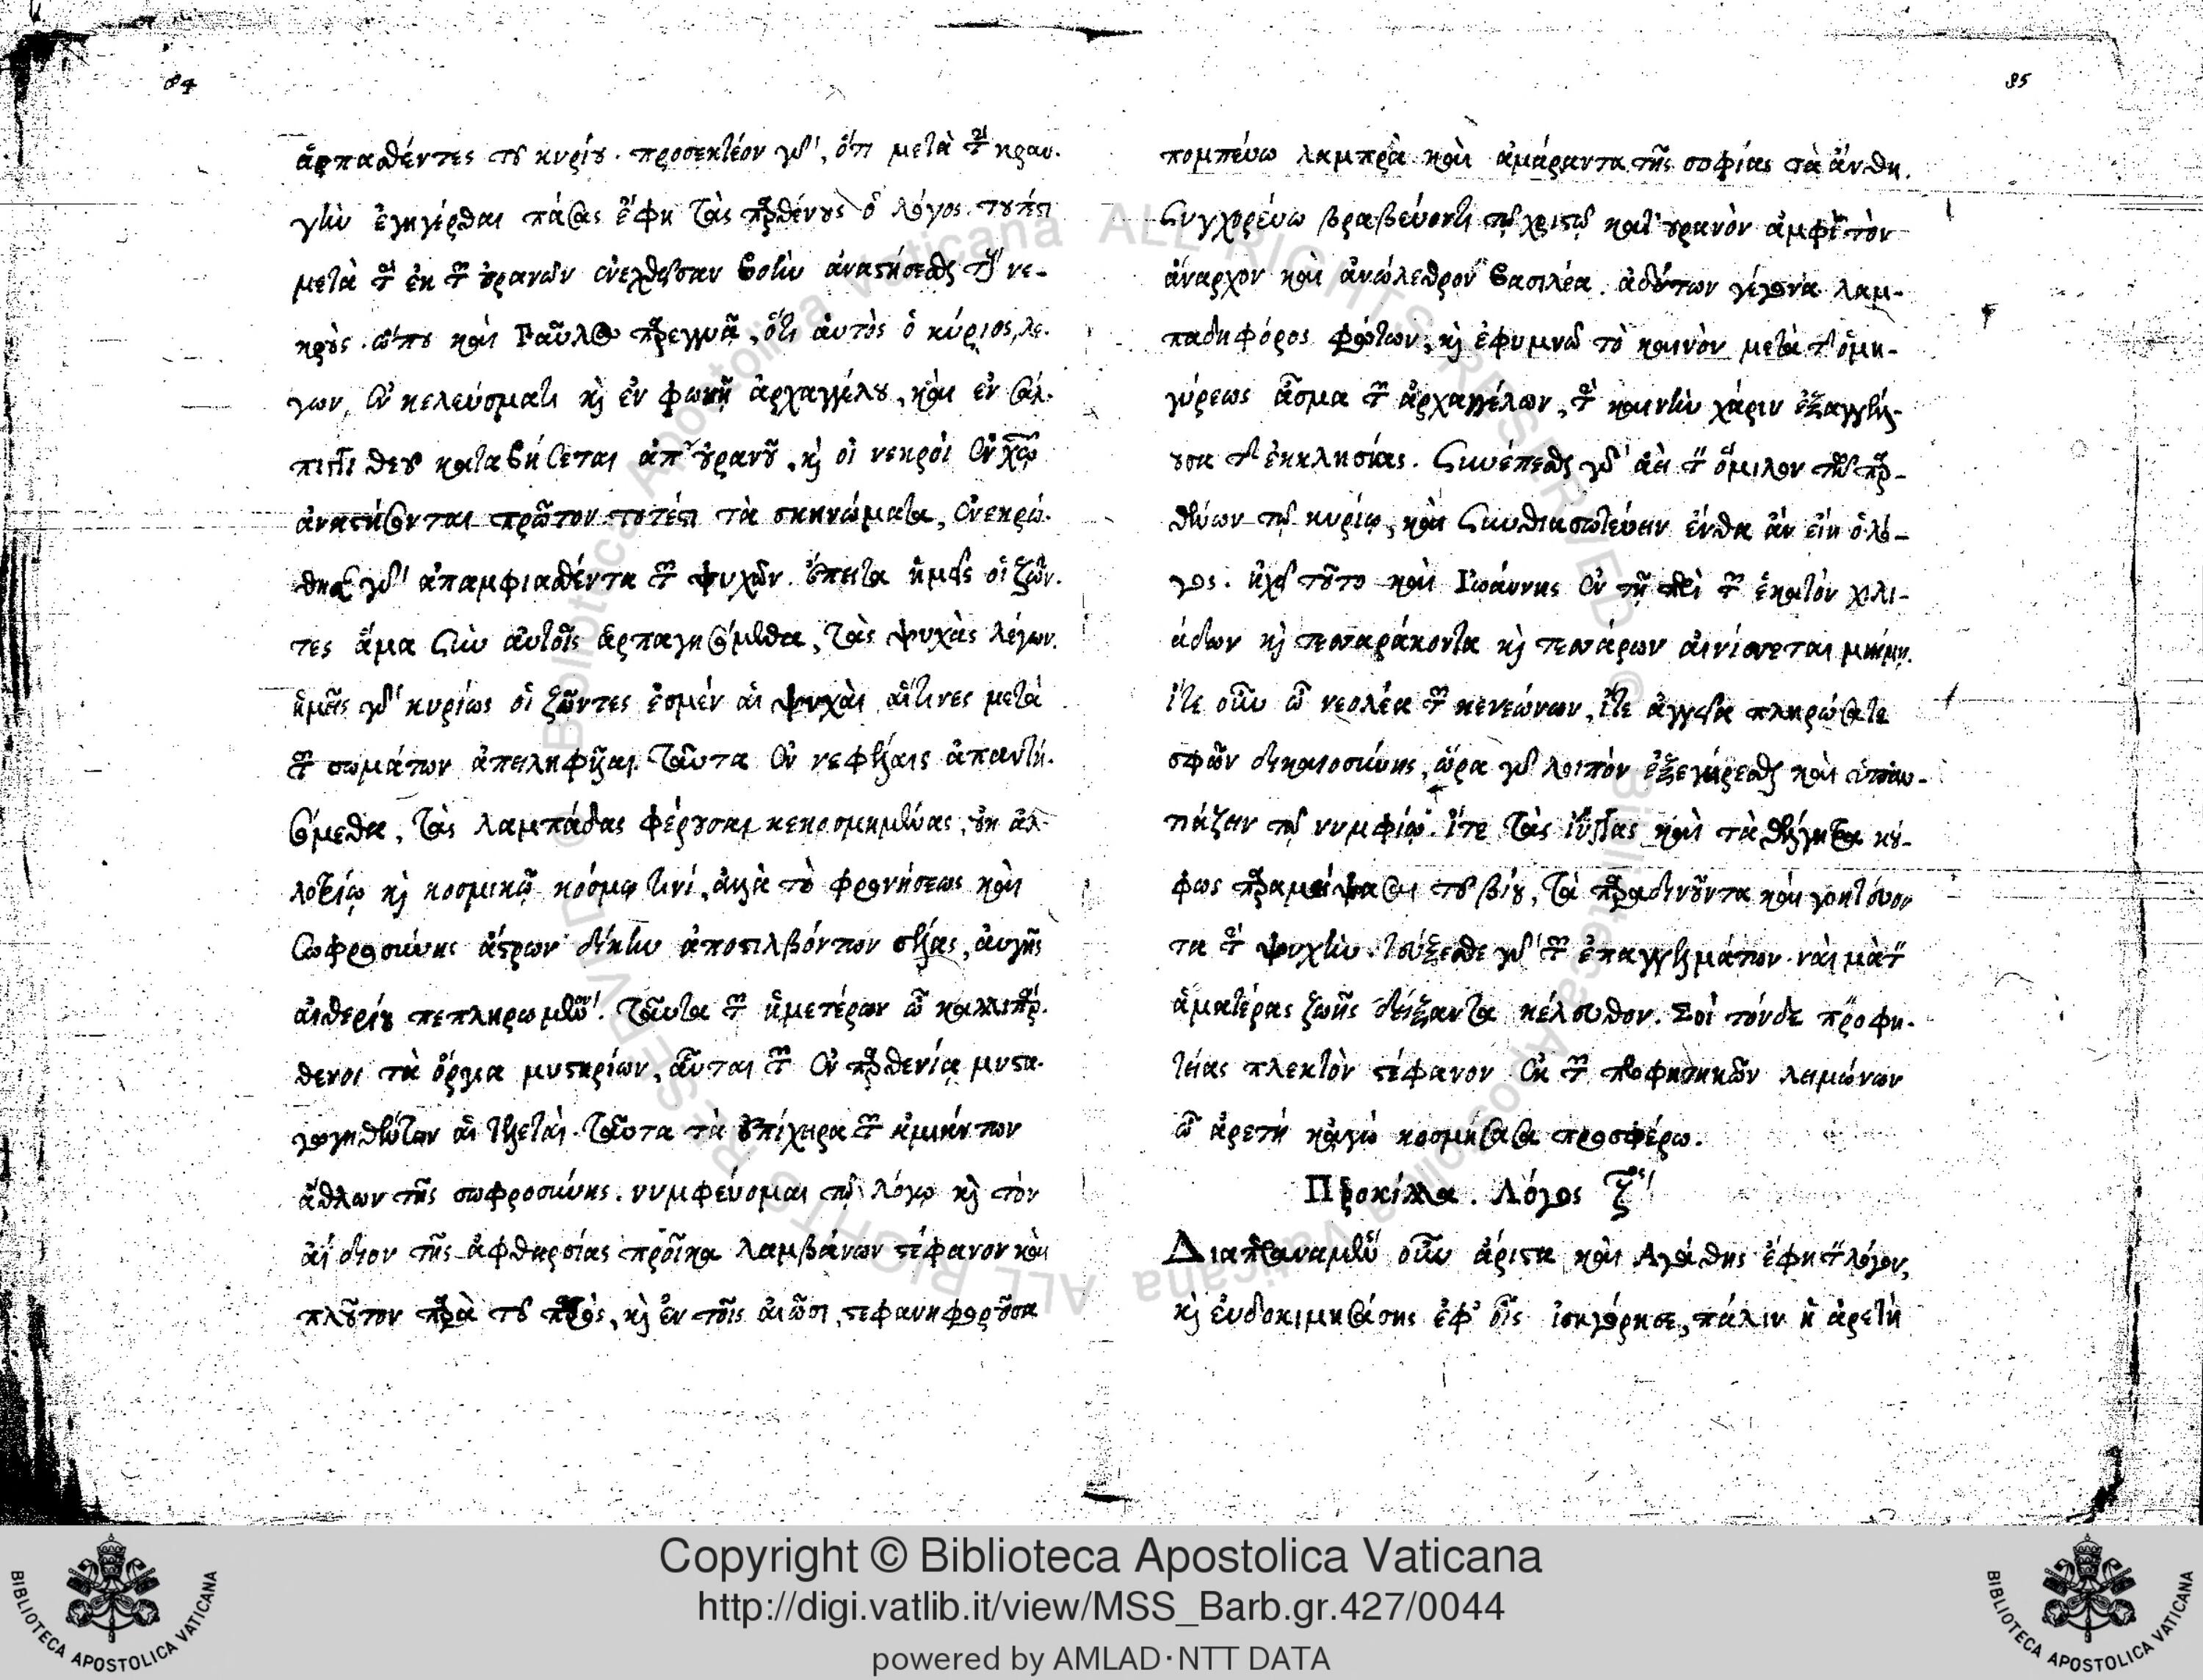 84
ἁρπασθέντες τοῦ κυρίου. προσεκτέον γὰρ, ὅτι μετὰ τὴν κραυ-
γὴν ἐγηγέρθαι πάσας ἔφη τὰς παρθένους ὁ λόγος. τουτέστι
μετὰ τὴν ἐκ τῶν οὐρανῶν ἐνεχθεῖσαν βοὴν ἀναστήσεσθαι τοὺς νε-
κρούς. ὥς που καὶ Παῦλος παρεγγυᾷ, ὅτι αὐτὸς ὁ κύριος, λέ-
γων, ἐν κελεύσματι καὶ ἐν φωνῇ ἀρχαγγέλου, καὶ ἐν σάλ-
πιγγι θεοῦ καταβήσεται ἀπ' οὐρανοῦ, καὶ οἱ νεκροὶ ἐν χῷ
ἀναστήσονται πρῶτον. τουτέστι τὰ σκηνώματα, ἐνεκρώ-
θησαν γὰρ ἀπαμφιασθέντα τῶν ψυχῶν. ἔπειτα ἡμεῖς οἱ ζῶν-
τες ἅμα σὺν αὐτοῖς ἁρπαγησόμεθα, τὰς ψυχὰς λέγων.
ἡμεῖς γὰρ κυρίως οἱ ζῶντες ἐσμὲν αἱ ψυχαὶ αἵτινες μετὰ
τῶν σωμάτων ἀπειληφυῖαι ταῦτα ἐν νεφέλαις ἀπαντή-
σόμεθα, τὰς λαμπάδας φέρουσαι κεκοσμημένας, οὐκ ἀλ-
λοτρίῳ καὶ κοσμικῷ κόσμῳ τινί, ἀλλὰ τὸ φρονήσεως καὶ
σωφροσύνης ἄστρων δίκην ἀποστιλβόντων ὅλας, αὐγῆς
αἰθερίου πεπληρωμένου. ταῦτα τῶν ἡμετέρων ὦ καλλιπάρ-
θενοι τὰ ὄργια μυστηρίων, αὗται τῶν ἐν παρθενίᾳ μυστα-
γωγηθέντων αἱ τελεταί. ταῦτα τὰ ἐπίχειρα τῶν ἀμιάντων
ἄθλων τῆς σωφροσύνης. νυμφεύομαι τῷ λόγῳ καὶ τὸν
ἀΐδιον τῆς ἀφθαρσίας προῖκα λαμβάνων στέφανον καὶ
πλοῦτον παρὰ τοῦ πατρός, καὶ ἐν τοῖς αἰῶσι, στεφανηφοροῦσα
85
πομπεύω λαμπρὰ καὶ ἀμάραντα τῆς σοφίας τὰ ἄνθη.
συγχορεύω βραβεύοντι τῷ χριστῷ κατ' οὐρανὸν ἀμφὶ τὸν
ἄναρχον καὶ ἀνώλεθρον βασιλέα. ἀδύτων γέγονα λαμ-
παδηφόρος φώτων, καὶ ἐφυμνῶ τὸ καινὸν μετὰ τῆς ὁμη-
γύρεως ᾆσμα τῶν ἀρχαγγέλων, τὴν καινὴν χάριν ἐξαγγέλ-
ουσα τῆς ἐκκλησίας. συνέπεσθαι γὰρ ἀεὶ τὸν ὅμιλον τῶν παρ-
θένων τῷ κυρίῳ, καὶ συνθιασωτεύειν ἔνθα ἂν εἴη ὁ λό-
γος. ἦχε τοῦτο καὶ Ἰωάννης ἐν τῇ περὶ τῶν ἑκατὸν χιλι-
άδων καὶ τεσσαράκοντα καὶ τεσσάρων αἰνίσσεται μνήμῃ.
ἴτε οὖν ὦ νεολέα τῶν νενεώνων, ἴτε ἀγγεῖα πληρώσατε
σφῶν δικαιοσύνης, ὥρα γὰρ λοιπὸν ἐξεγείρεσθαι καὶ ὑπαν-
τιάζειν τῷ νυμφίῳ. ἴτε τὰς ἴυγγας καὶ τὰ θέλγητρα κού-
φως παραμείψασαι τοῦ βίου, τὰ παραδινοῦντα καὶ γοητεύον-
τα τὴν ψυχήν. τεύξεσθε γὰρ τῶν ἐπαγγελμάτων. ναὶ μὰ τὸν
ἁμετέρας ζωῆς δείξαντα κέλευθον. Σοὶ τόνδε προφη-
τείας πλεκτὸν στέφανον ἐκ τῶν προφητικῶν λειμώνων
ὦ ἀρετή κἀγὼ κοσμήσασα προσφέρω.
Προκίλλα. Λόγος ζ΄
Διαπεραναμένου οὖν ἄριστα καὶ Ἀγάθης ἔφη τὸν λόγον,
καὶ εὐδοκιμησάσης ἐφ' οἷς ἰσηγόρησε, πάλιν ἡ ἀρετὴ
Copyright © Biblioteca Apostolica Vaticana
http://digi.vatlib.it/view/MSS_Barb.gr.427/0044
powered by AMLAD·NTT DATA
BIBLIOTECA APOSTOLICA VATICANA
BIBLIOTECA APOSTOLICA VATICANA